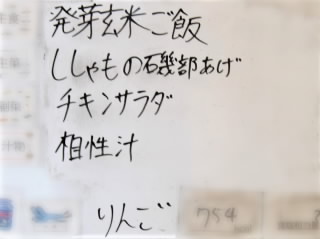 発芽玄米ご飯
ししゃもの石磯部あげ
チキンサラダ
相性汁
りんご
754